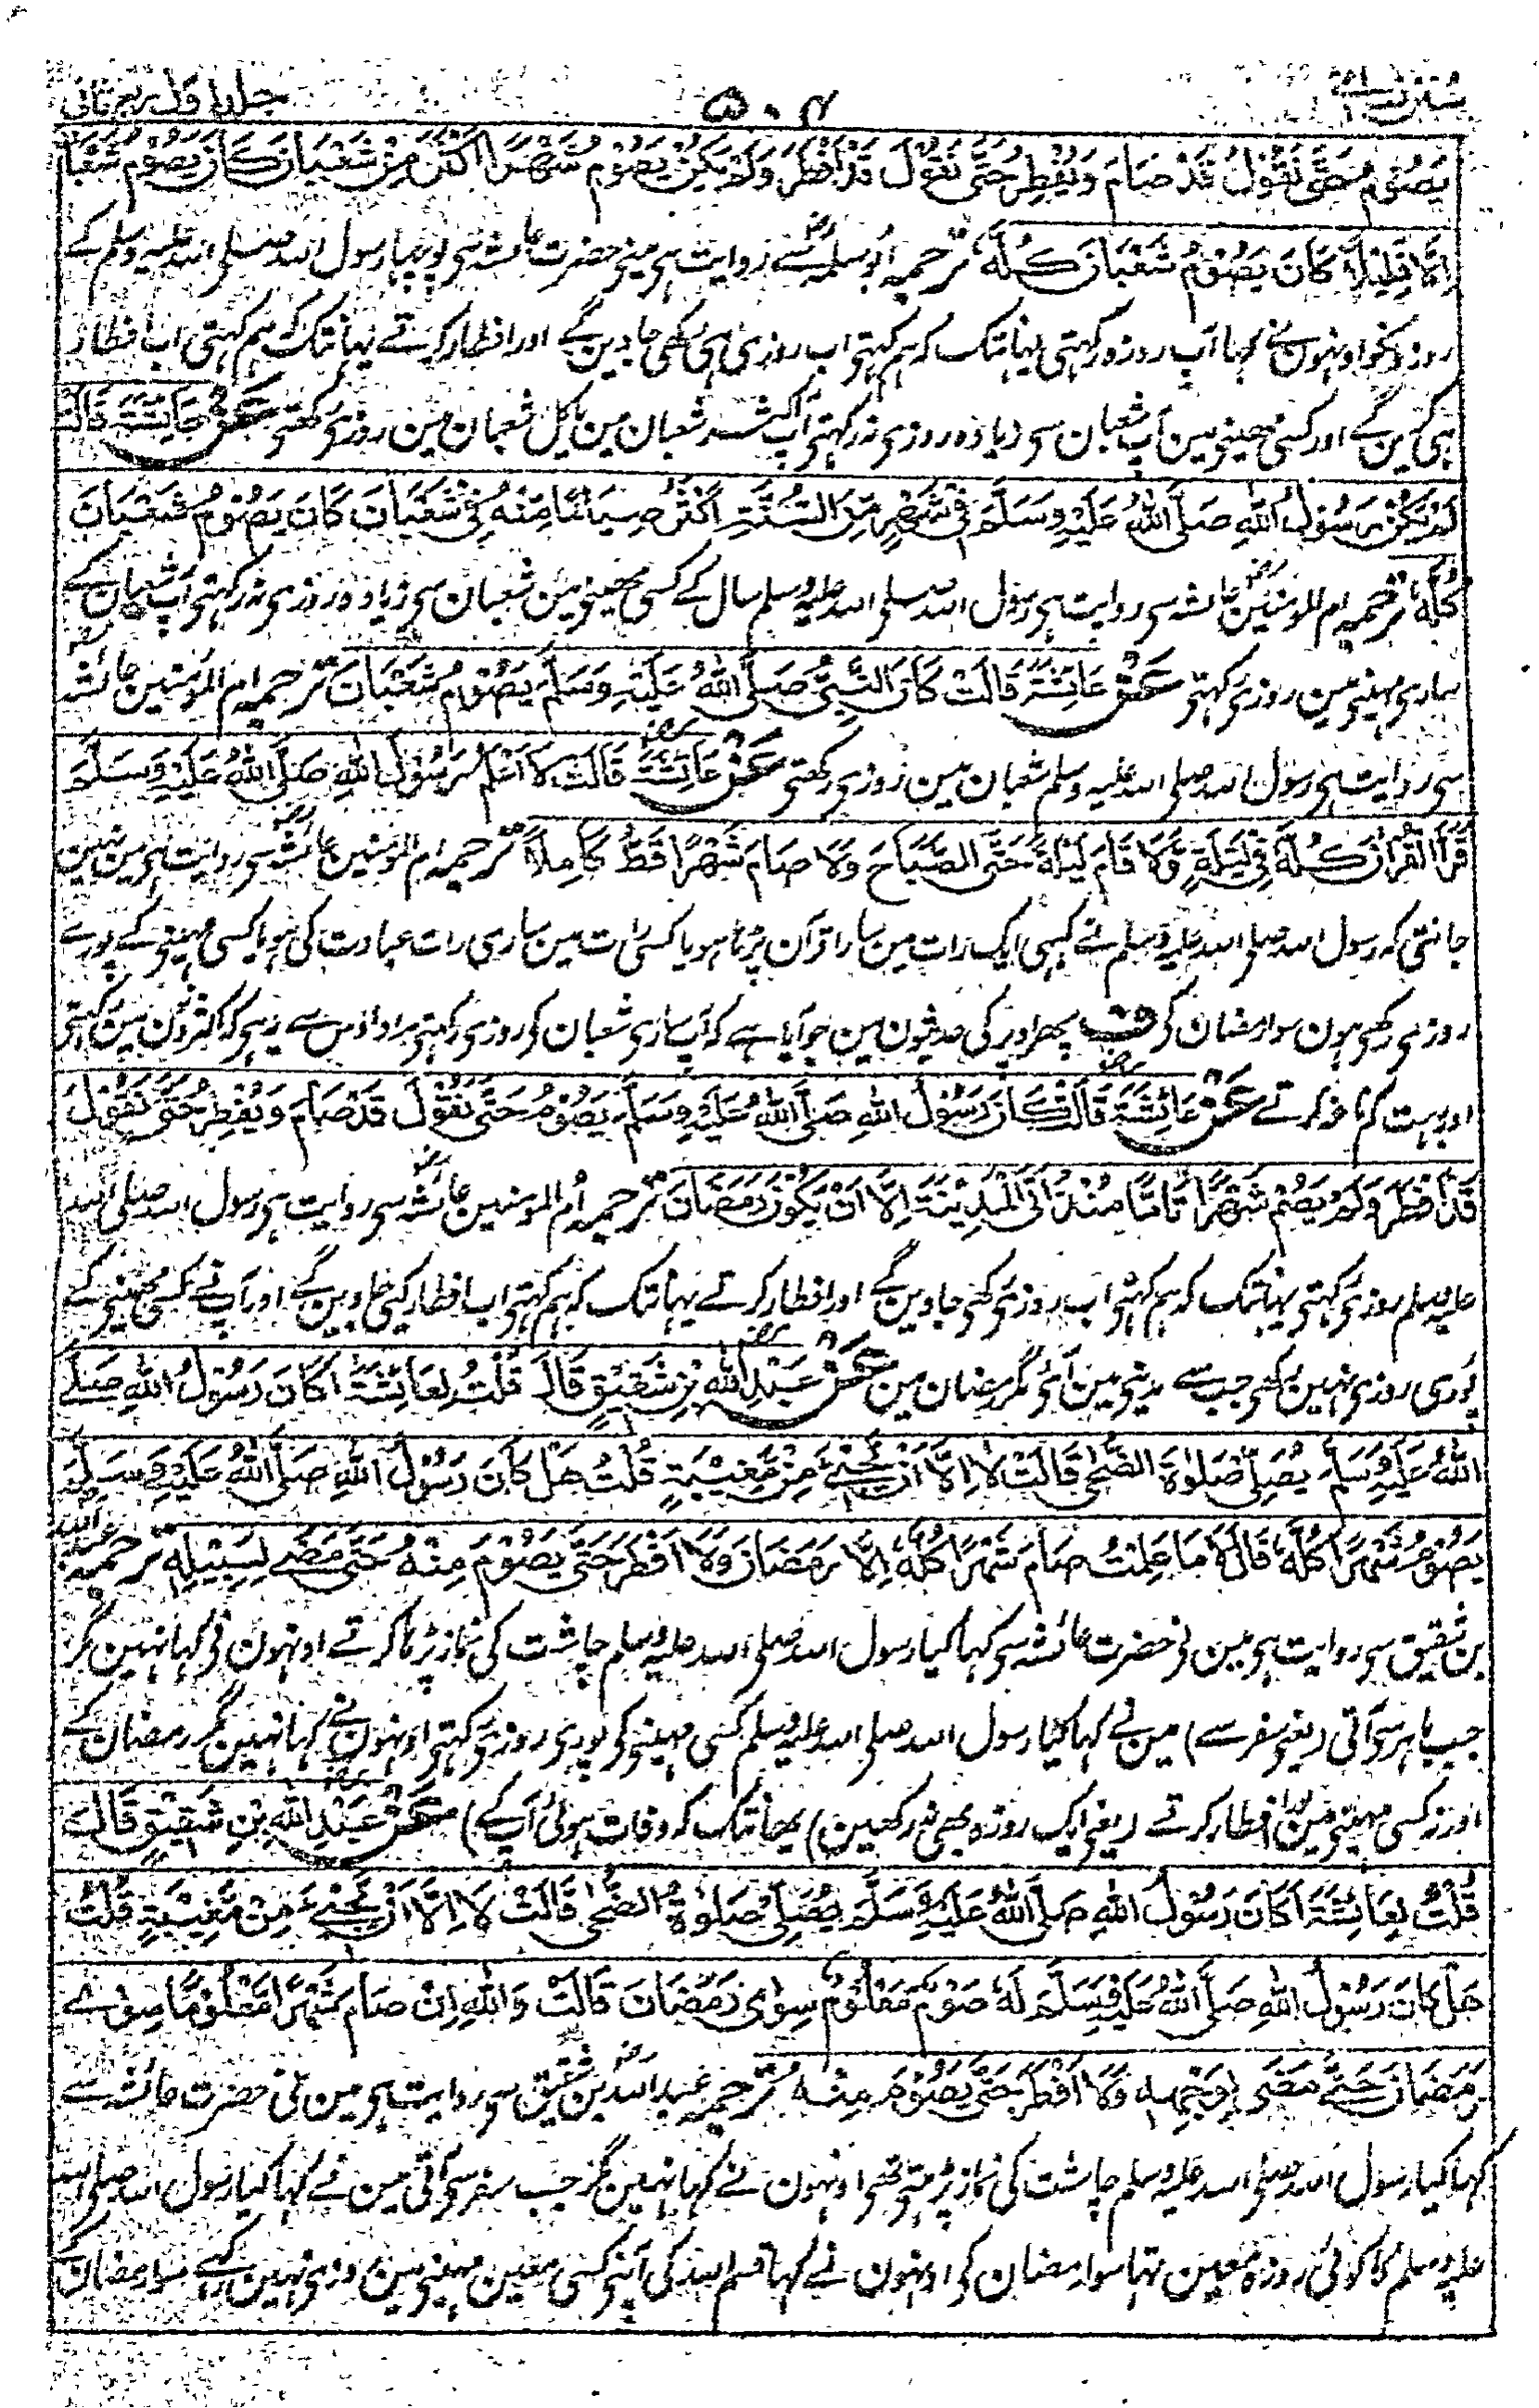 سنن نسائی ۵۰۴ جلد اول ربع ثانی
يَصُوْمُ حَتّٰى نَقُوْلَ قَدْ صَامَ وَيُفْطِرُ حَتّٰى نَقُوْلَ قَدْ اَفْطَرَ وَلَمْ يَكُنْ يَصُوْمُ شَهْرًا اَكْثَرَ مِنْ شَعْبَانَ كَانَ يَصُوْمُ شَعْبَانَ
اِلَّا قَلِيْلًا كَانَ يَصُوْمُ شَعْبَانَ كُلَّهٗ ترجمہ ابو سلمہ سے روایت ہی مینی حضرت عائشہ سی پوچہا رسول اللہ صلی اللہ علیہ وسلم کے
روزونکو اونہوں نے کہا آپ روزہ رکہتی یہانتک کہ ہم کہتی اب روزی ہی رکھی جاوین گے اور افطار کرتے یہانتک کہ ہم کہتی اب افطار
ہی کرین گے اور کسی مہینی مین آپ شعبان سی زیادہ روزی نہ رکہتی آپ اکثر شعبان مین یا کل شعبان مین روزی رکھتی عَنْ عَائِشَةَ قَالَتْ
لَمْ يَكُنْ رَسُوْلُ اللّٰهِ صَلَّى اللّٰهُ عَلَيْهِ وَسَلَّمَ فِيْ شَهْرٍ مِّنَ السَّنَةِ اَكْثَرَ صِيَامًا مِّنْهُ فِيْ شَعْبَانَ كَانَ يَصُوْمُ شَعْبَانَ
كُلَّهٗ ترجمہ ام المومنین عائشہ سی روایت ہی رسول اللہ صلی اللہ علیہ وسلم سال کے کسی مہینی مین شعبان سی زیادہ روزی نہ رکہتی آپ شعبان کے
ساری مہینی مین روزی رکہتی عَنْ عَائِشَةَ قَالَتْ كَانَ النَّبِيُّ صَلَّى اللّٰهُ عَلَيْهِ وَسَلَّمَ يَصُوْمُ شَعْبَانَ ترجمہ ام المومنین عائشہ
سی روایت ہی رسول اللہ صلی اللہ علیہ وسلم شعبان مین روزی رکھتی عَنْ عَائِشَةَ قَالَتْ لَا اَعْلَمُ رَسُوْلَ اللّٰهِ صَلَّى اللّٰهُ عَلَيْهِ وَسَلَّمَ
قَرَأَ الْقُرْاٰنَ كُلَّهٗ فِيْ لَيْلَةٍ وَّلَا قَامَ لَيْلَةً حَتَّى الصَّبَاحَ وَلَا صَامَ شَهْرًا قَطُّ كَامِلًا ترجمہ ام المومنین عائشہ سی روایت ہی مین نہین
جانتی کہ رسول اللہ صلی اللہ علیہ وسلم نے کبہی ایک رات مین سارا قرآن پڑہا ہو یا کسی رات مین ساری رات عبادت کی ہو یا کسی مہینی کے پورے
روزی رکھی ہون سوا رمضان کے ف پھر اوپر کی حدیثون مین جو آیا ہے کہ آپ ساری شعبان کو روزی رکہتی مراد اوس سے یہی کہ اکثر دنون مین رکہتی
اور بہت کم ناغہ کرتے عَنْ عَائِشَةَ قَالَتْ كَانَ رَسُوْلُ اللّٰهِ صَلَّى اللّٰهُ عَلَيْهِ وَسَلَّمَ يَصُوْمُ حَتّٰى نَقُوْلَ قَدْ صَامَ وَيُفْطِرُ حَتّٰى نَقُوْلَ
قَدْ اَفْطَرَ وَلَمْ يَصُمْ شَهْرًا تَامًّا مُنْذُ اَتَى الْمَدِيْنَةَ اِلَّا اَنْ يَكُوْنَ رَمَضَانَ ترجمہ اُم المومنین عائشہ سی روایت ہی رسول اللہ صلی اللہ
علیہ وسلم روزی رکہتی یہانتک کہ ہم کہتی اب روزی رکہی جاوین گے اور افطار کرتے یہانتک کہ ہم کہتی اب افطار کیی جاوین گے اور آپ نے کسی مہینی کے
پوری روزی نہین رکہی جب سے مدینی مین آئی مگر رمضان مین عَنْ عَبْدِ اللّٰهِ بْنِ شَقِيْقٍ قَالَ قُلْتُ لِعَائِشَةَ اَكَانَ رَسُوْلُ اللّٰهِ صَلَّى
اللّٰهُ عَلَيْهِ وَسَلَّمَ يُصَلِّيْ صَلٰوةَ الضُّحٰى قَالَتْ لَا اِلَّا اَنْ يَّجِيْءَ مِنْ مَّغِيْبَةٍ قُلْتُ هَلْ كَانَ رَسُوْلُ اللّٰهِ صَلَّى اللّٰهُ عَلَيْهِ وَسَلَّمَ
يَصُوْمُ شَهْرًا كُلَّهٗ قَالَتْ مَا عَلِمْتُ صَامَ شَهْرًا كُلَّهٗ اِلَّا رَمَضَانَ وَلَا اَفْطَرَ حَتّٰى يَصُوْمَ مِنْهُ حَتّٰى مَضٰى لِسَبِيْلِهٖ ترجمہ عبد اللہ
بن شقیق سی روایت ہی مین نی حضرت عائشہ سی کہا کیا رسول اللہ صلی اللہ علیہ وسلم چاشت کی نماز پڑہا کرتے اونہون نی کہا نہین مگر
جب باہر سی آتی (یعنی سفر سے) مین نے کہا کیا رسول اللہ صلی اللہ علیہ وسلم کسی مہینی کو پوری روزی رکہتی اونہون نے کہا نہین مگر رمضان کے
اور نہ کسی مہینی مین پورا افطار کرتے (یعنی ایک روزہ بھی نہ رکھین) یہانتک کہ وفات ہوئی آپ کے) عَنْ عَبْدِ اللّٰهِ بْنِ شَقِيْقٍ قَالَ
قُلْتُ لِعَائِشَةَ اَكَانَ رَسُوْلُ اللّٰهِ صَلَّى اللّٰهُ عَلَيْهِ وَسَلَّمَ يُصَلِّيْ صَلٰوةَ الضُّحٰى قَالَتْ لَا اِلَّا اَنْ يَّجِيْءَ مِنْ مَّغِيْبَةٍ قُلْتُ
هَلْ كَانَ رَسُوْلُ اللّٰهِ صَلَّى اللّٰهُ عَلَيْهِ وَسَلَّمَ لَهٗ صَوْمٌ مَعْلُوْمٌ سِوٰى رَمَضَانَ قَالَتْ وَاللّٰهِ اِنْ صَامَ شَهْرًا مَعْلُوْمًا سِوٰى
رَمَضَانَ حَتّٰى مَضٰى لِوَجْهِهٖ وَلَا اَفْطَرَ حَتّٰى يَصُوْمَ مِنْهُ ترجمہ عبد اللہ بن شقیق سی روایت ہی مین نی حضرت عائشہ سے
کہا کیا رسول اللہ صلی اللہ علیہ وسلم چاشت کی نماز پڑہتی تھی اونہون نے کہا نہین مگر جب سفر سی آتی مین نے کہا کیا رسول اللہ صلی اللہ
علیہ وسلم کا کوئی روزہ معین تہا سوا رمضان کی اونہون نے کہا قسم اللہ کی آپنی کسی معین مہینی مین روزی نہین رکہے سوا رمضان کے